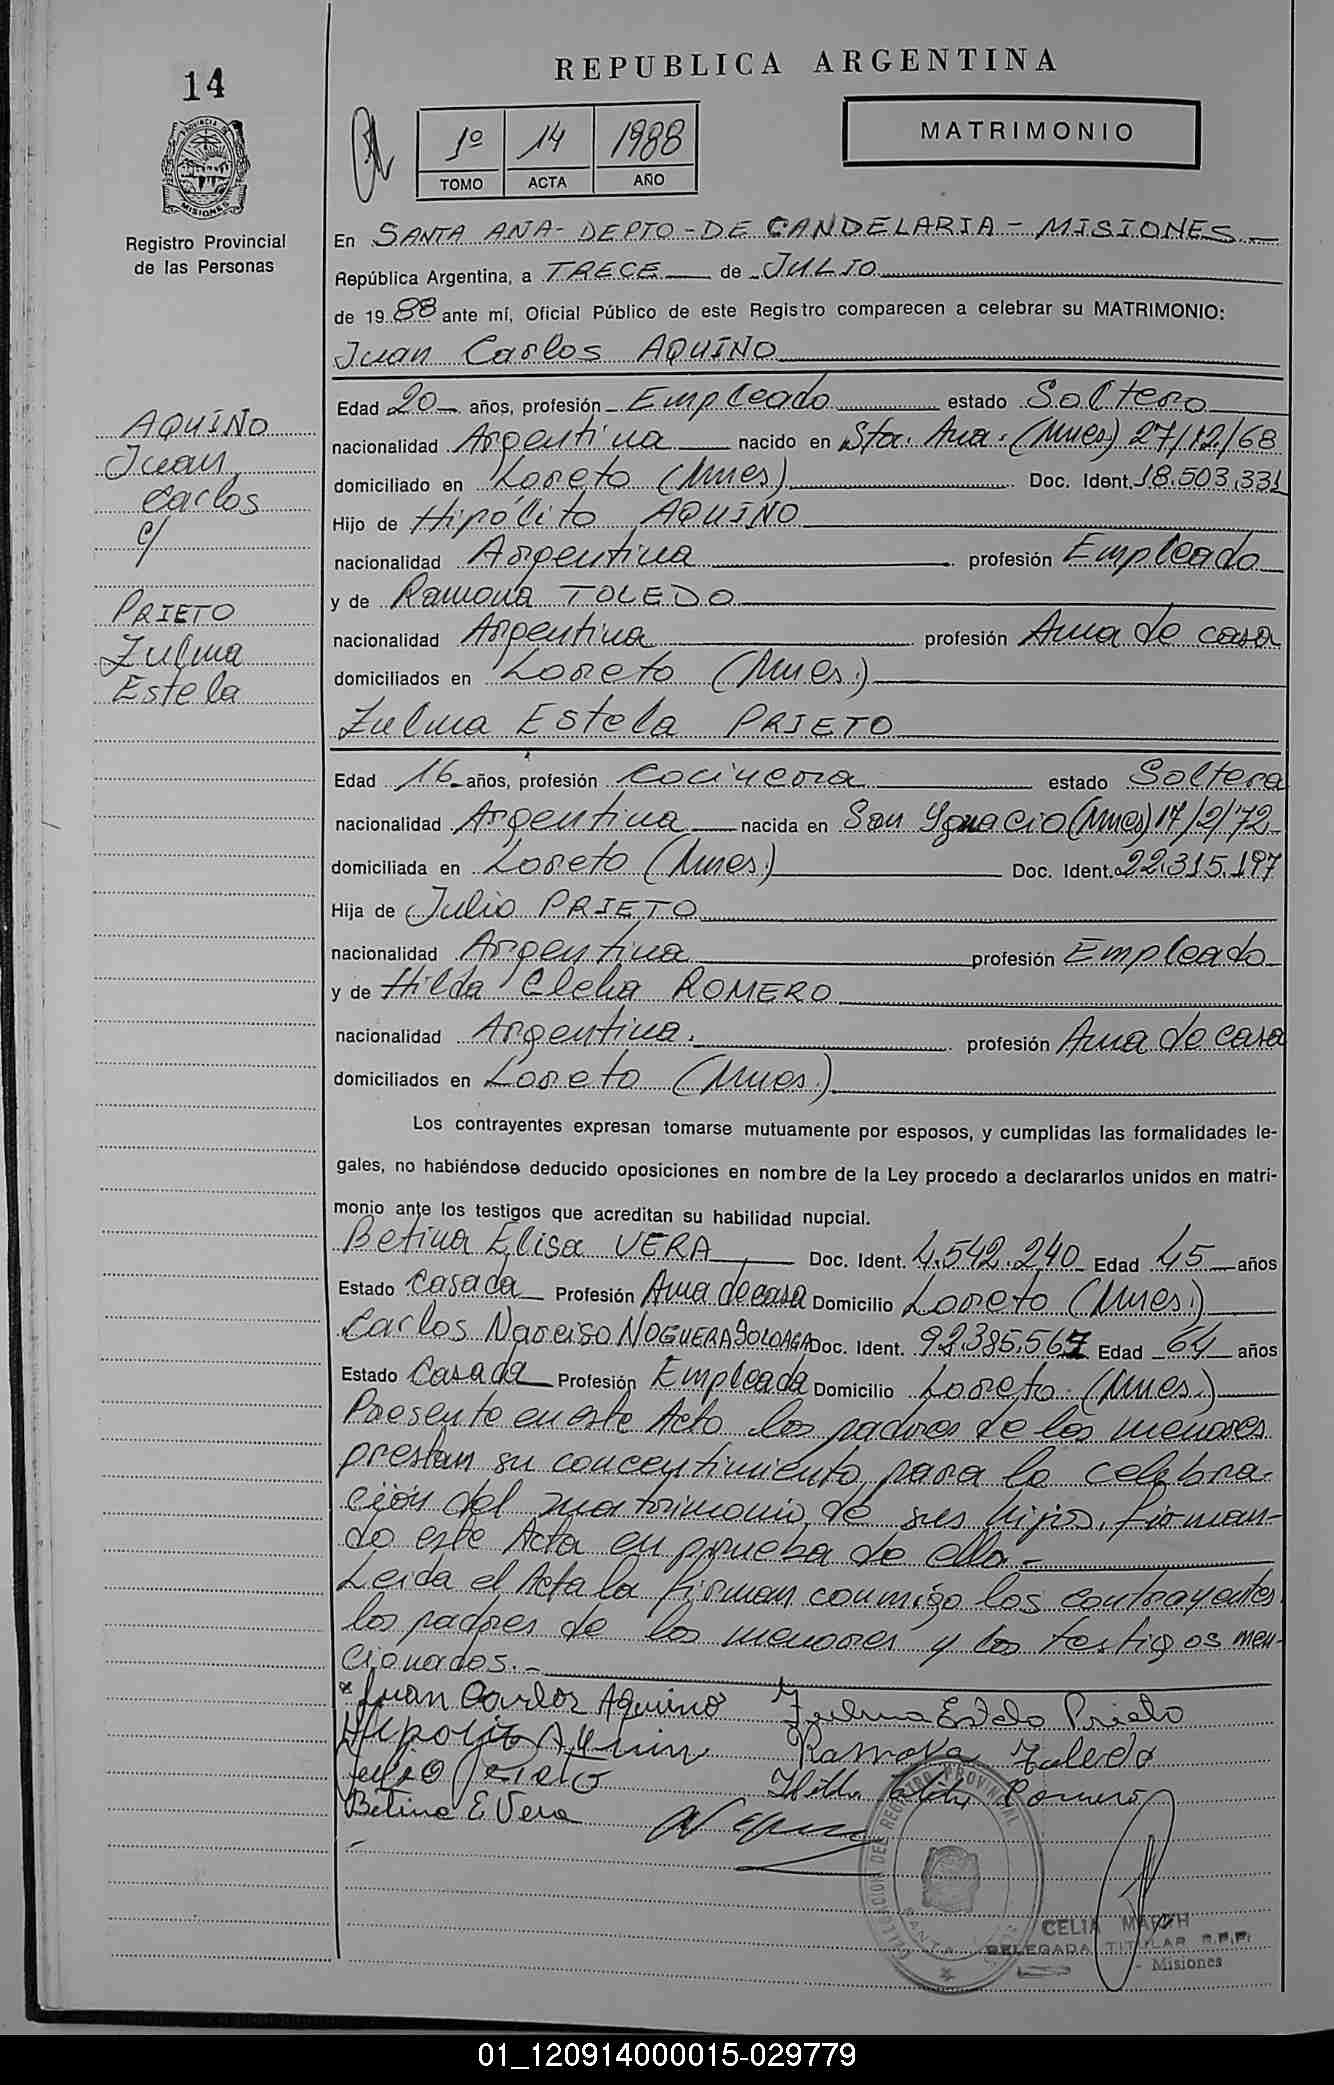 REPUBLICA ARGENTINA
14
PROVINCIA DE
MISIONES
Registro Provincial
de las Personas
1º 14 1988
TOMO ACTA AÑO
MATRIMONIO
En SANTA ANA - DEPTO - DE CANDELARIA - MISIONES
República Argentina, a TRECE de JULIO
de 1988 ante mí, Oficial Público de este Registro comparecen a celebrar su MATRIMONIO:
Juan Carlos AQUINO
Edad 20 años, profesión Empleado estado Soltero
nacionalidad Argentina nacido en Sta. Ana. (Mnes) 27/12/68
domiciliado en Loreto (Mnes) Doc. Ident. 18.503.331
Hijo de Hipólito AQUINO
nacionalidad Argentina profesión Empleado
y de Ramona TOLEDO
nacionalidad Argentina profesión Ama de casa
domiciliados en Loreto (Mnes.)
Zulma Estela PRIETO
Edad 16 años, profesión Cocinera estado Soltera
nacionalidad Argentina nacida en San Ygnacio (Mnes) 17/2/72
domiciliada en Loreto (Mnes.) Doc. Ident. 22.315.197
Hija de Julio PRIETO
nacionalidad Argentina profesión Empleado
y de Hilda Clelia ROMERO
nacionalidad Argentina. profesión Ama de casa
domiciliados en Loreto (Mnes.)
AQUINO
Juan
Carlos
c/
PRIETO
Zulma
Estela
Los contrayentes expresan tomarse mutuamente por esposos, y cumplidas las formalidades le-
gales, no habiéndose deducido oposiciones en nombre de la Ley procedo a declararlos unidos en matri-
monio ante los testigos que acreditan su habilidad nupcial.
Betina Elisa VERA Doc. Ident. 4.542.240 Edad 45 años
Estado Casada Profesión Ama de casa Domicilio Loreto (Mnes.)
Carlos Narciso NOGUERA Doc. Ident. 92.385.567 Edad 64 años
Estado Casada Profesión Empleada Domicilio Loreto (Mnes.)
Presente en este Acto los padres de los menores
prestan su concentimiento para la celebra-
ción del matrimonio de sus hijos, firman-
do este Acta en prueba de ello -
Leida el Acta la firman conmigo los contrayentes
los padres de los menores y los testigos men-
cionados. -
Juan Carlos Aquino Zulma Estela Prieto
Hipolito Aquino Ramona Toledo
Julio Prieto Hilda Romero
Betina E Vera
DELEGACION DEL REGISTRO PROVINCIAL
SANTA
CELIA
DELEGADA TITULAR R.P.P.
- Misiones
01_120914000015-029779